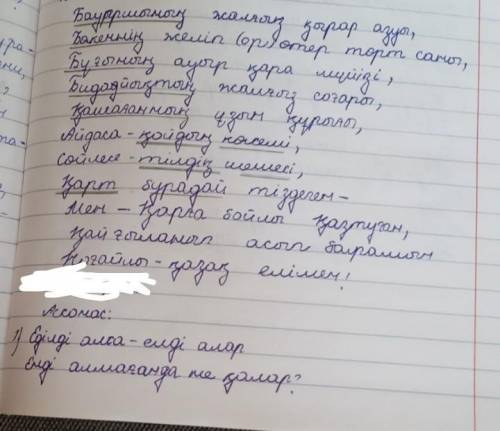 Бауыршының жалғыз қырар азуы,
Бөкеннің желіп (ор) өтер төрт саны,
Бұғының ауыр қара мүйізі,
Бидайықтың жалғыз соғары,
ұзын құрығы,
Айдаса - қойдың көсемі,
Сөйлесе - тілдің шешесі,
Қарт бурадай тіздеген -
Мен - Қарға бойлы Қазтуған,
Қайғыланып асып барамын
Ноғайлы - қазақ елімен!
Ассонас:
1) Еділді алса - елді алар
Енді алмағанда не қалар?